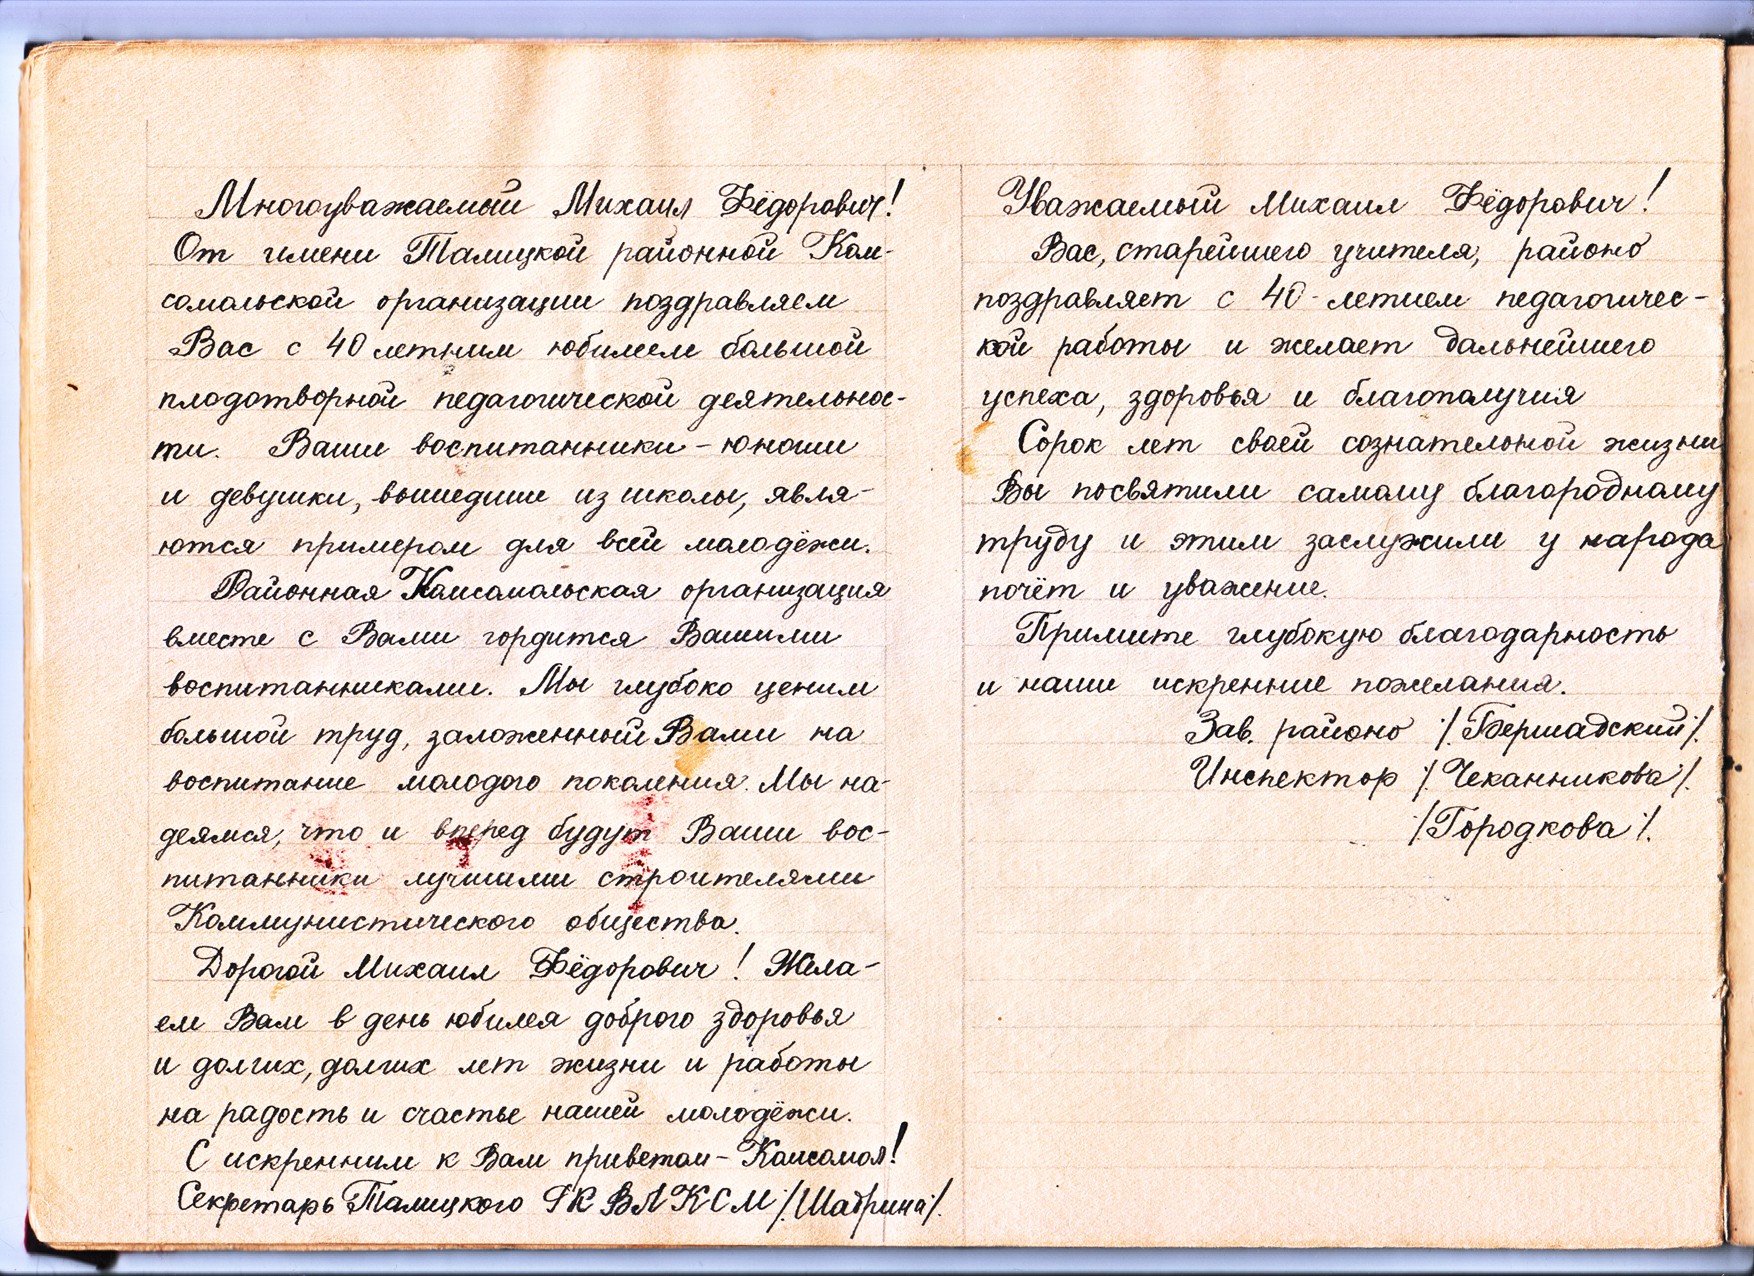 Многоуважаемый Михаил Фёдорович!
От имени Талицкой районной Ком-
сомольской организации поздравляем
Вас с 40 летним юбилеем большой
плодотворной педагогической деятельнос-
ти. Ваши воспитанники – юноши
и девушки, вышедшие из школы, явля-
ются примером для всей молодёжи.
Районная Комсомольская организация
вместе с Вами гордится Вашими
воспитанниками. Мы глубоко ценим
большой труд, заложенный Вами на
воспитание молодого поколения. Мы на-
деямся, что и вперед будут Ваши вос-
питанники лучшими строителями
Коммунистического общества.
Дорогой Михаил Фёдорович! Жела-
ем Вам в день юбилея доброго здоровья
и долгих, долгих лет жизни и работы
на радость и счастье нашей молодёжи.
С искренним к Вам приветом – Комсомол!
Секретарь Талицкого РК ВЛКСМ /Шабрина/.
Уважаемый Михаил Фёдорович!
Вас, старейшего учителя, районо
поздравляет с 40-летием педагогичес-
кой работы и желает дальнейшего
успеха, здоровья и благополучия
Сорок лет своей сознательной жизни
Вы посвятили самому благородному
труду и этим заслужили у народа
почёт и уважение.
Примите глубокую благодарность
и наши искренние пожелания.
Зав. районо /Бершадский/.
Инспектор /Чеканникова/.
/Городкова/.